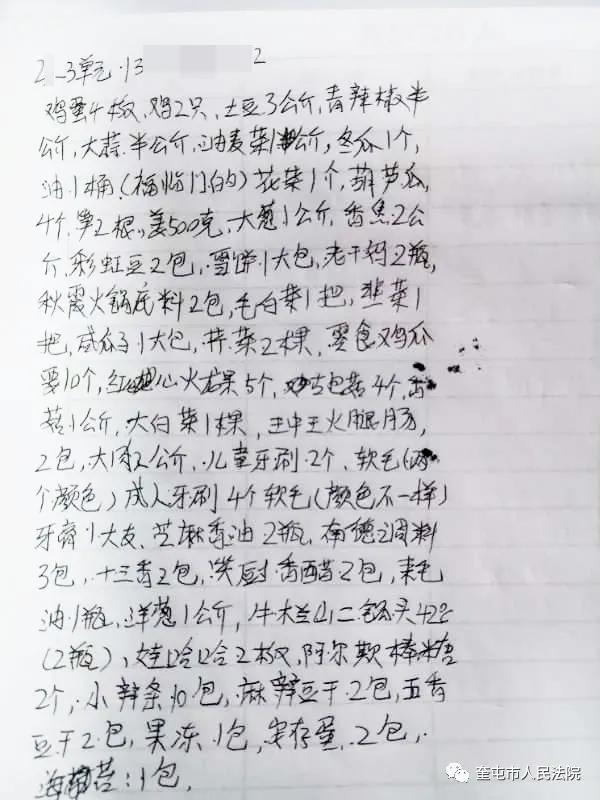 2 -3单元·13 2
鸡蛋4板,鸡2只,土豆3公斤,青辣椒半
公斤,大蒜半公斤,油麦菜1公斤,冬瓜1个,
油1桶(福临门的)花菜1个,葫芦瓜,
4个,笋2根,姜500克,大葱1公斤,香蕉2公
斤,彩虹豆2包,雪饼1大包,老干妈2瓶,
秋霞火锅底料2包,毛白菜1把,韭菜1
把,瓜子1大包,芹菜2棵,零食鸡爪
要10个,红心火龙果5个,菇4个,香
菇1公斤,大白菜1棵,王中王火腿肠,
2包,大肉2公斤,儿童牙刷2个,软毛(两
个颜色)成人牙刷4个软毛(颜色不一样)
牙膏1大支、芝麻香油2瓶,南德调料
3包,十三香2包,香醋2包,耗
油1瓶,洋葱1公斤,牛木兰山二锅头42°
(2瓶),娃哈哈2板,阿尔欺棒糖
2个,小辣条10包,麻辣豆干2包,五香
豆干2包,果冻1包,安存蛋2包,
海苔:1包,
奎屯市人民法院